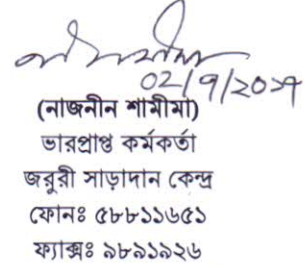 ০২/৭/২০১৭
(নাজনীন শামীমা)
ভারপ্রাপ্ত কর্মকর্তা
জরুরী সাড়াদান কেন্দ্র
ফোনঃ ৫৮৮১১৬৫১
ফ্যাক্সঃ ৯৮৯১৯২৬